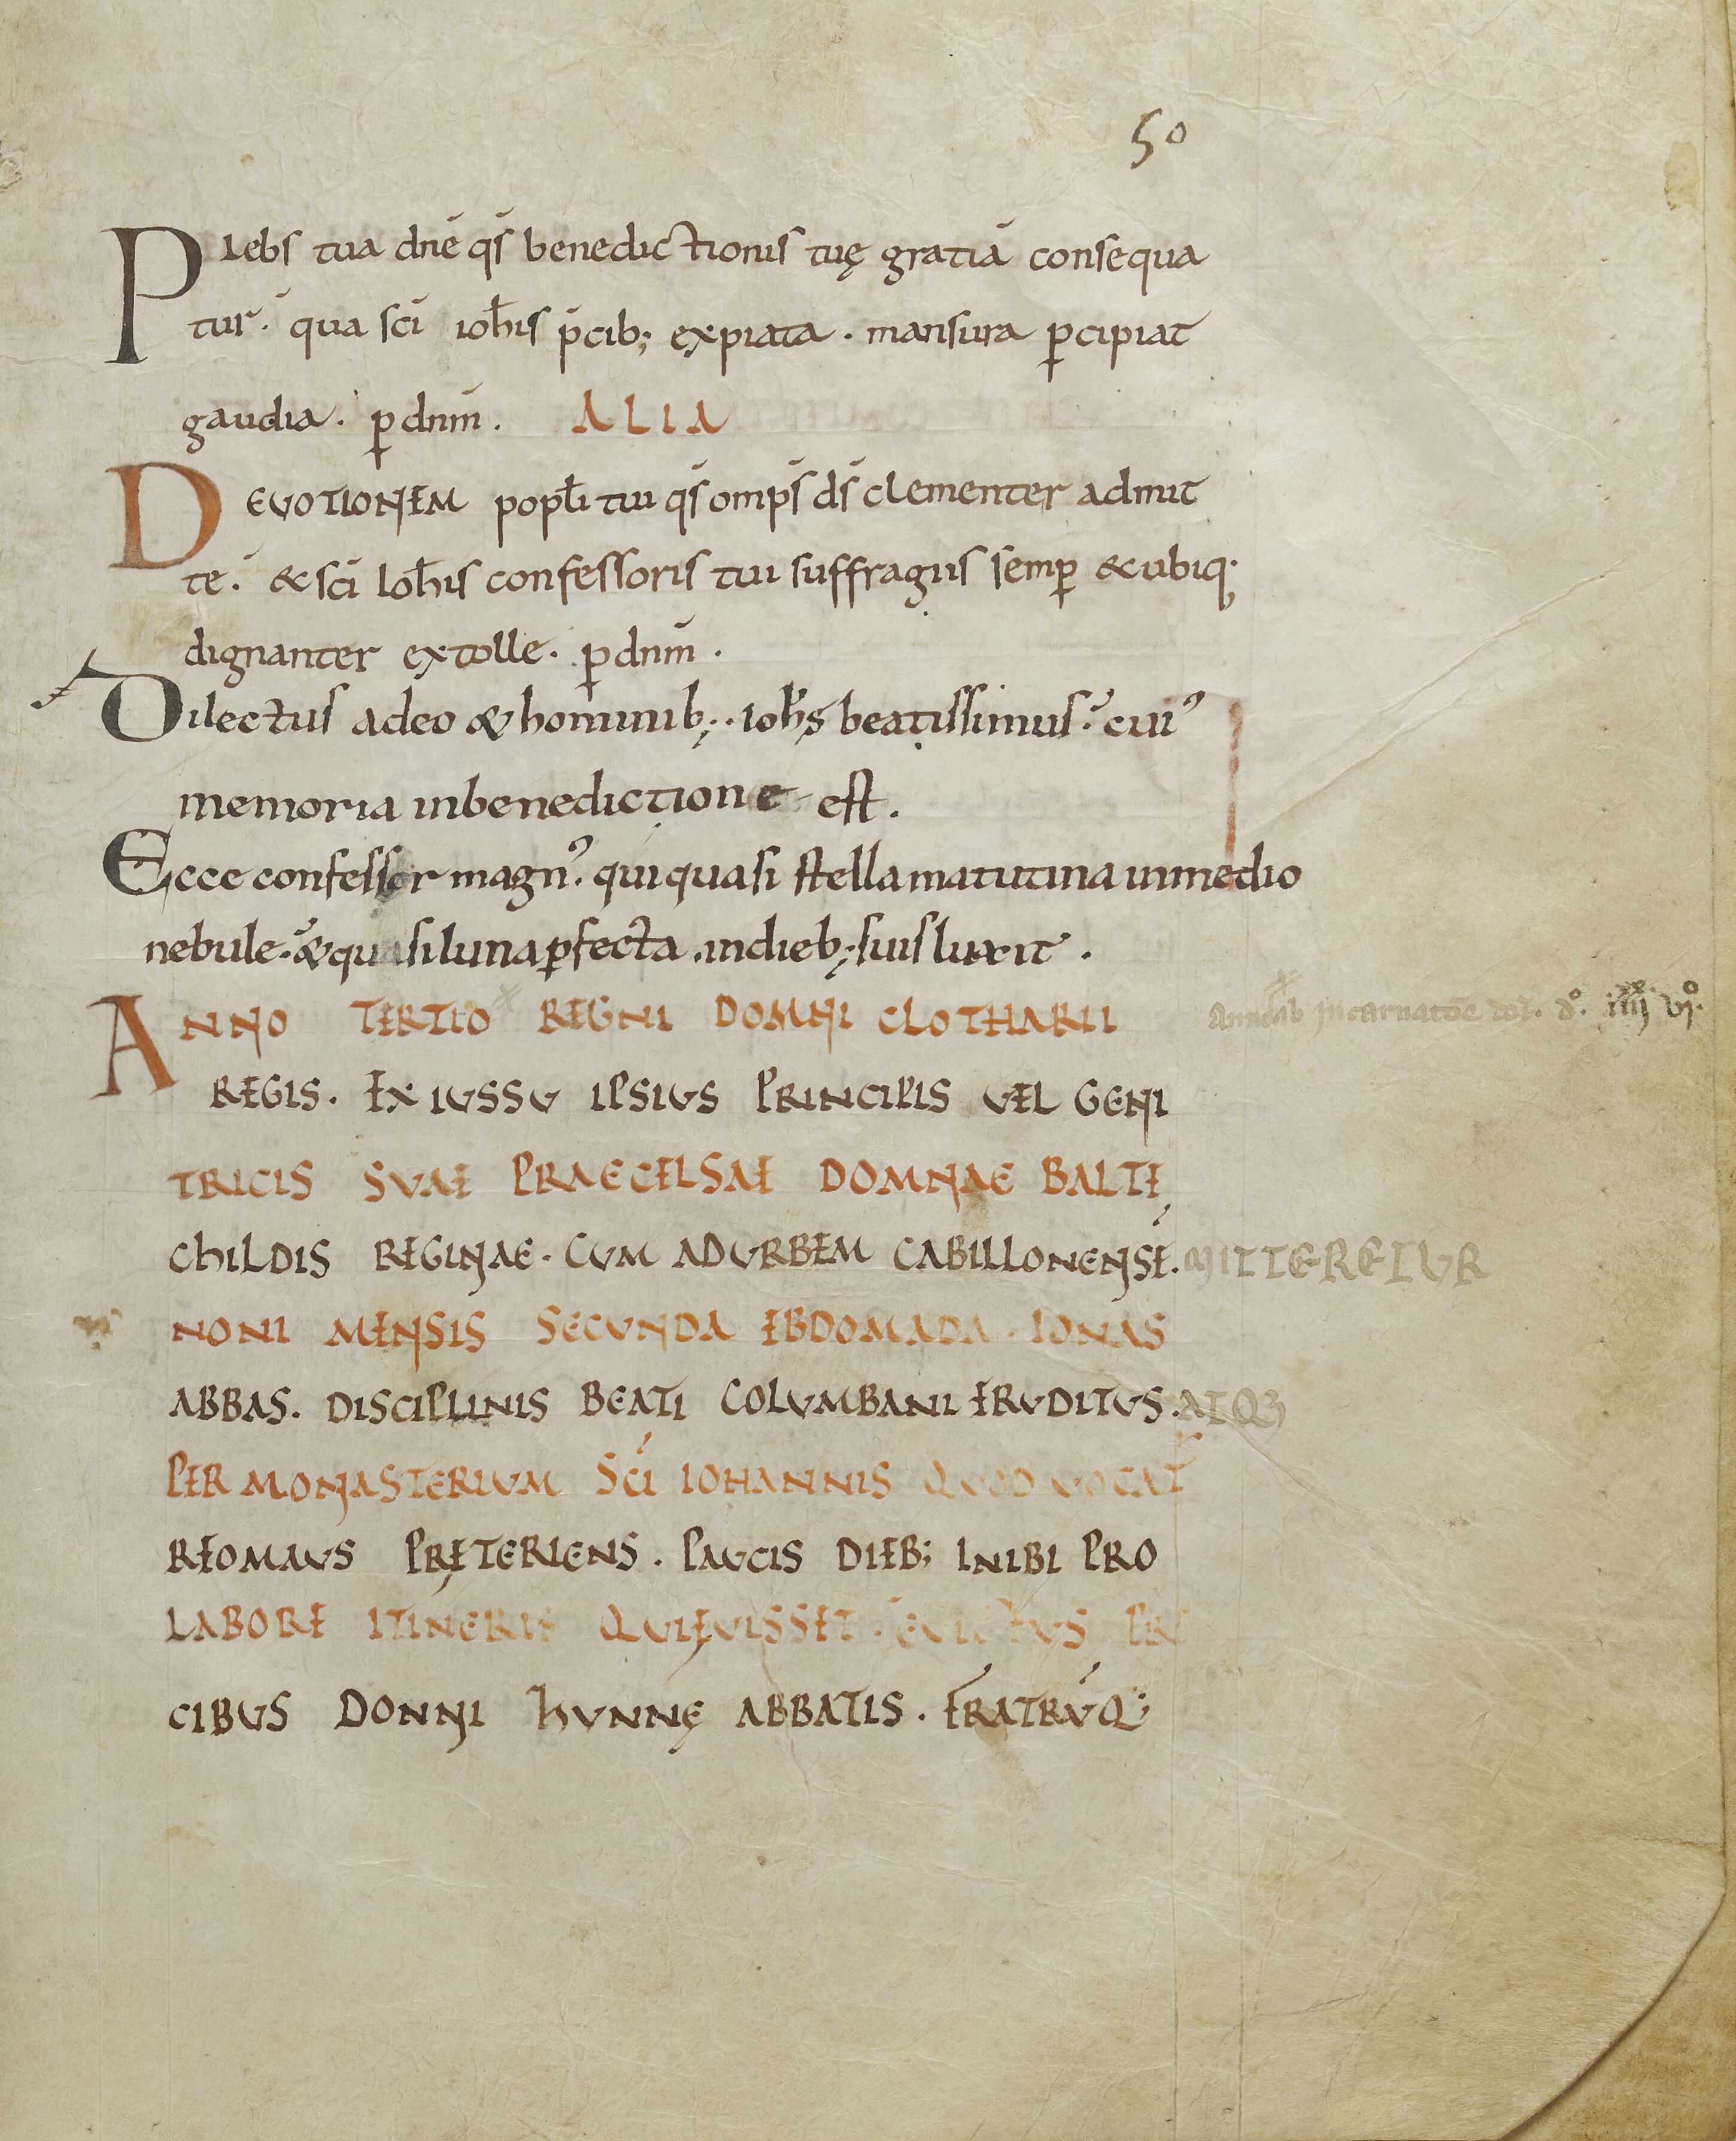 50
Plebs tua dnē qs̄ benedictionis tuę gratiā consequa
tur. quā sc̄i ioh̄is p̄cib; expiata. mansura ꝑcipiat
gaudia. ꝑ dnm̄. ALIA
DEVOTIONEM popl̄i tui qs̄ omps̄ ds̄ clementer admit
te. & sc̄i Ioh̄is confessoris tui suffragiis semꝑ & ubiq;
dignanter extolle. ꝑ dnm̄.
Dilectus adeo & hominib;. ioh̄s beatissimus. cuiꝰ
memoria inbenedictione est.
Ecce confessor magnꝰ. qui quasi stella matutina inmedio
nebule. & quasi luna ꝑfecta. indieb; suis luxit.
ANNO TERTIO REGNI DOMNI CLOTHARII
Anno ab incarnatōe
REGIS. EX IUSSU IPSIUS PRINCIPIS UEL GENI
TRICIS SVAE PRAECELSAE DOMNAE BALTE
CHILDIS REGINAE. CUM ADURBEM CABILLONENSĒ. MITTERETUR
NONI MENSIS SECUNDA EBDOMADA. IONAS
ABBAS. DISCIPLINIS BEATI COLUMBANI ERUDITUS. ATQ;
PER MONASTERIUM SC̄I IOHANNIS QUOD UOCAT̄
REOMAUS PRĘTERIENS. PAUCIS DIEB; INIBI PRO
LABORE ITINERIS QUIEUISSET. PRE
CIBUS DONNI HUNNĘ ABBATIS. FRATRŪQ;